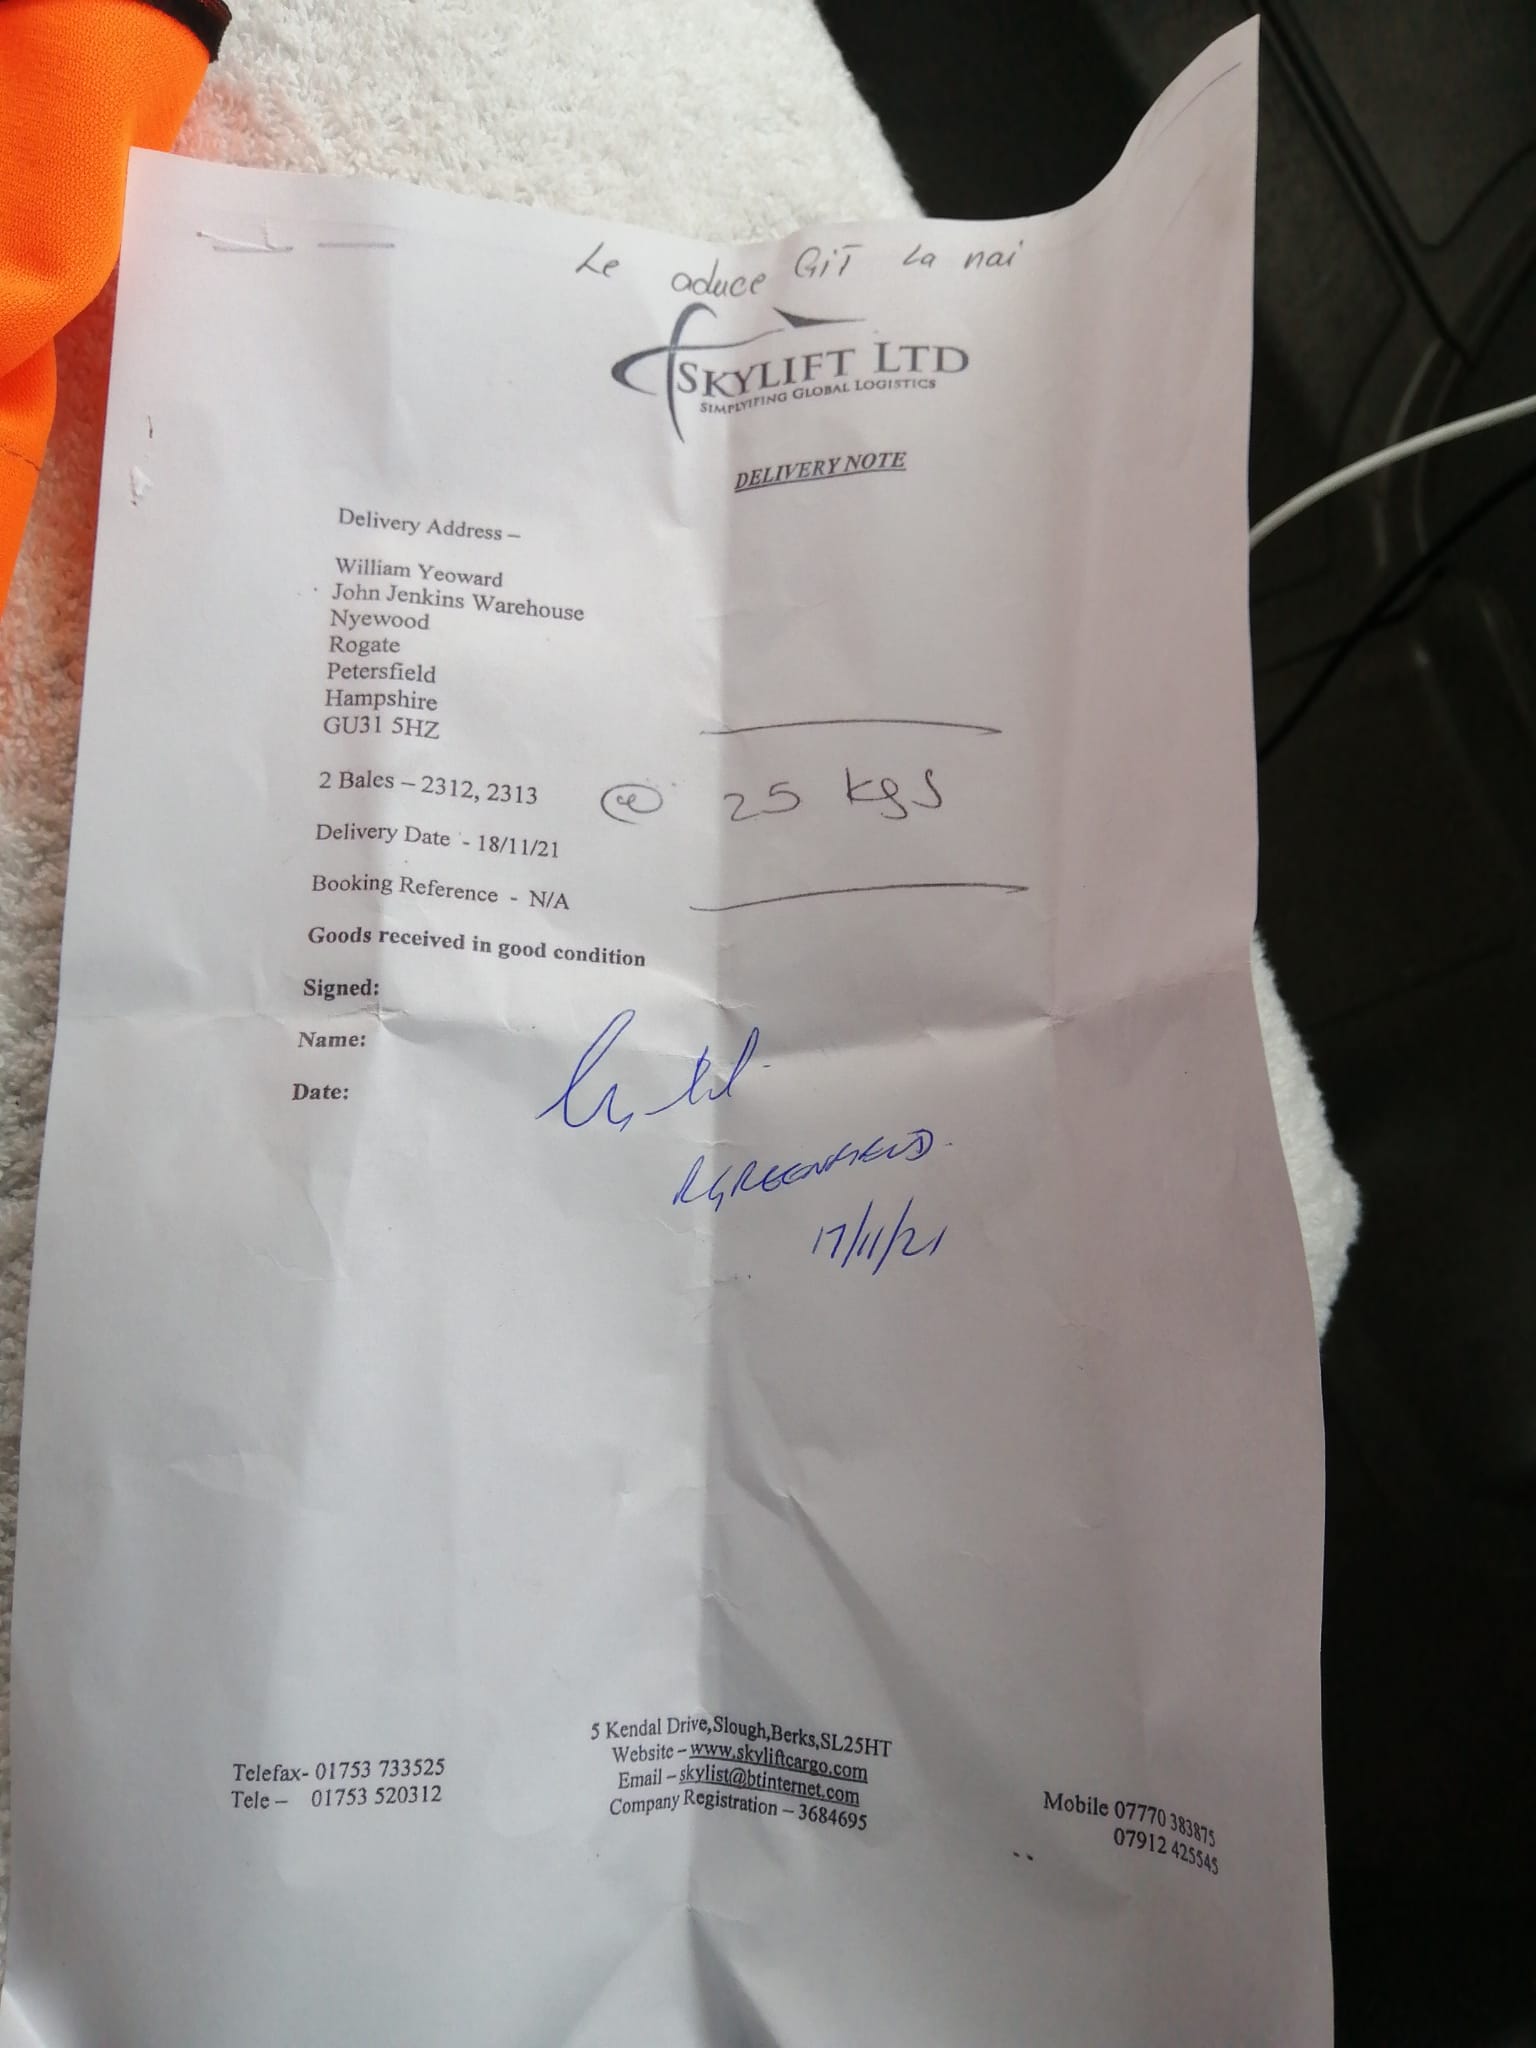 Le aduce GIT La nai
SKYLIFT LTD
SIMPLYIFING GLOBAL LOGISTICS
DELIVERY NOTE
Delivery Address –
William Yeoward
John Jenkins Warehouse
Nyewood
Rogate
Petersfield
Hampshire
GU31 5HZ
2 Bales – 2312, 2313 @ 25 kgs
Delivery Date - 18/11/21
Booking Reference - N/A
Goods received in good condition
Signed:
Name:
Date:
R GREENFIELD.
17/11/21
5 Kendal Drive,Slough,Berks,SL25HT
Website – www.skyliftcargo.com
Email – skylist@btinternet.com
Company Registration – 3684695
Telefax- 01753 733525
Tele – 01753 520312
Mobile 07770 383875
07912 425545